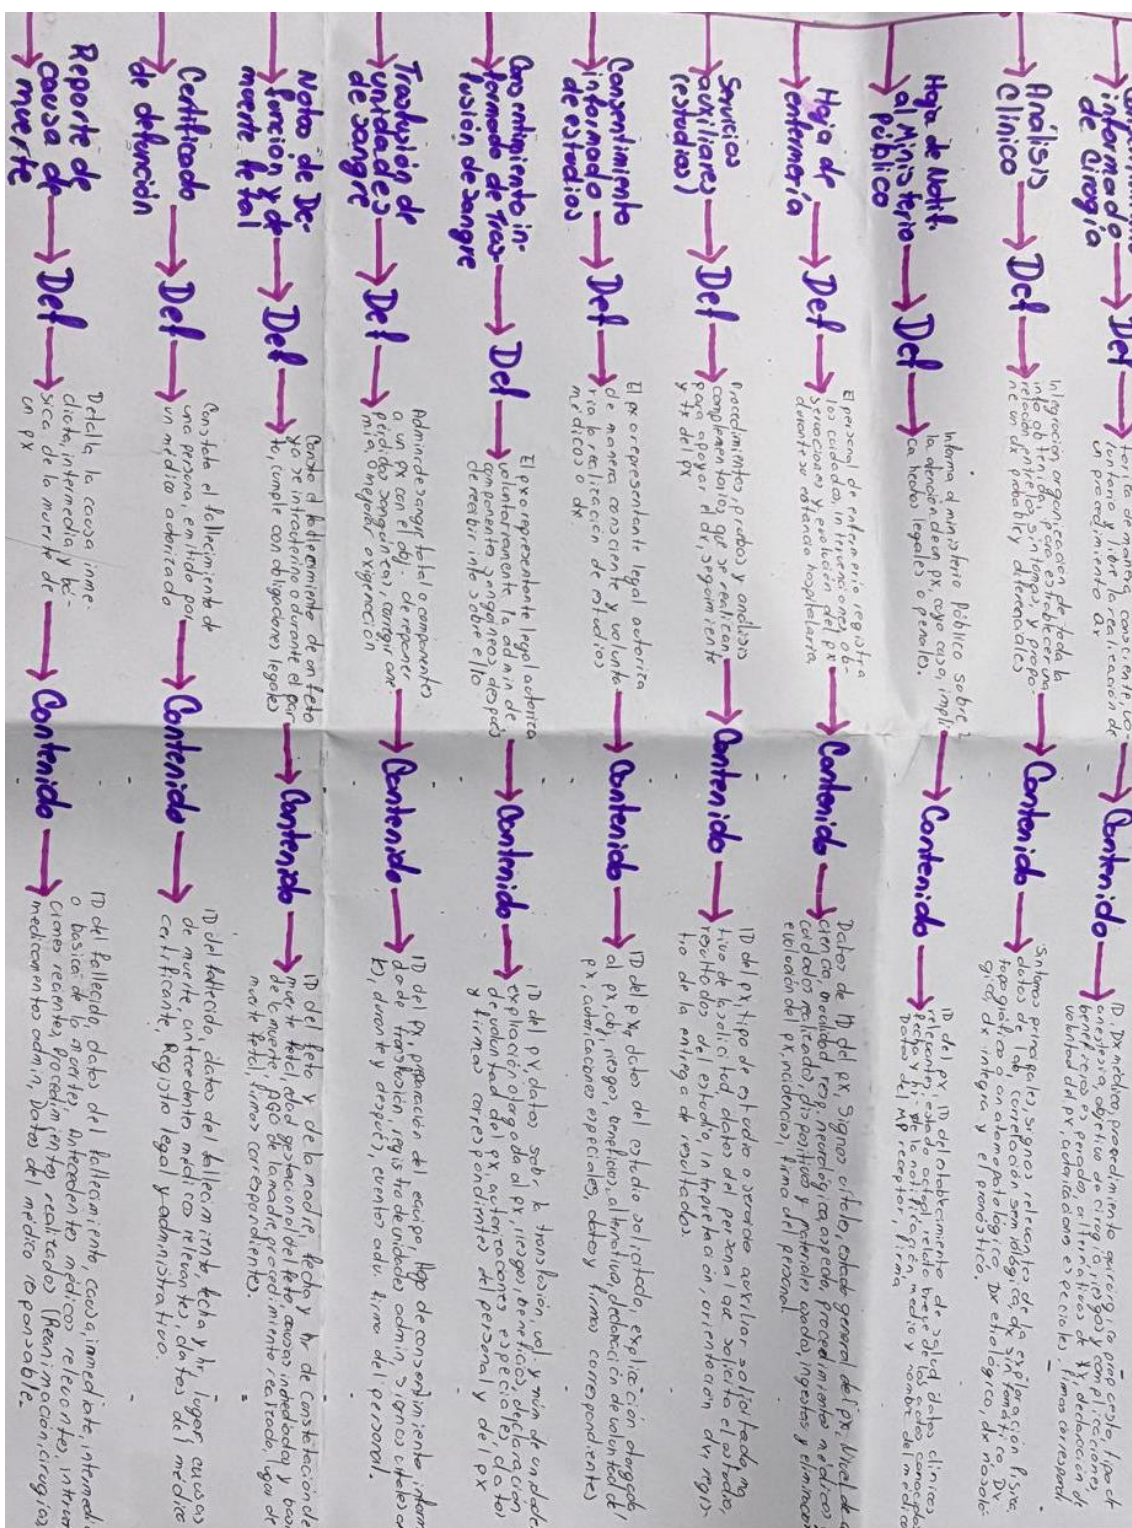 informado
de Cirugía
Def
luntario y libre la realización de
un procedimiento qx
Contenido
ID. Dx médico, procedimiento quirúrgico
anestesia, objetivo de cirugía, riesgos y complicaciones,
beneficios esperados, alternativas de tx, declaración de
voluntad del px, autorizaciones especiales, firmas correspondi
Análisis
Clínico
Def
Integración, organización de toda la
info obtenida, para establecer una
relación entre los síntomas, y propo-
ne un dx probable y diferenciales
Contenido
Síntomas principales, signos relevantes de la exploración física,
datos de lab, correlación semiológica, dx sintomático, Dx
topográfico o anatomopatológico, Dx etiológico, dx nosoló-
gico, dx integra y el pronóstico.
Hoja de Notif.
al Ministerio
público
Def
Informa al ministerio público sobre
la atención de un px, cuyo caso, impli
ca hechos legales o penales.
Contenido
ID del px, ID del establecimiento de salud, datos clínicos
relevantes, estado actual, relato breve de los actos conocidos
fecha y hr de la notificación, medio y nombre del médico
Datos del MP receptor, firma
Hoja de
enfermería
Def
El personal de enfermería registra
los cuidados, intervenciones, ob-
servaciones y evolución del px
durante su estancia hospitalaria
Contenido
Datos de ID del px, Signos vitales, estado general del px, Nivel de
ciencia, modalidad resp, neurológica, aspecto, procedimientos médicos
cuidados realizados, dispositivos y materiales usados, ingestas y eliminacion
evolución del px, incidencias, firma del personal
Servicios
auxiliares
(estudios)
Def
Procedimientos, pruebas y análisis
complementarios, que se realizan
para apoyar el dx, seguimiento
y tx del px
Contenido
ID del px, tipo de estudio o servicio auxiliar solicitado, mo
tivo de la solicitud, datos del personal que solicita el estudio,
resultados del estudio, interpretación, orientación dx, regis-
tro de la entrega de resultados.
Consentimiento
informado
de estudios
Def
El px o representante legal autoriza
de manera consciente y volunta-
ria la realización de estudios
médicos o dx.
Contenido
ID del px, datos del estudio solicitado, explicación otorgada
al px, obj, riesgos, beneficios, alternativa, declaración de voluntad del
px, autorizaciones especiales, datos y firmas correspondientes
Consentimiento in-
formado de Tras-
fusión de sangre
Def
El px o representante legal autoriza
voluntarramente la admin de
componentes sanguíneos, después
de recibir info sobre ello
Contenido
ID del px, datos sobre la transfusión, vol. y núm de unidades
explicación otorgada al px, riesgos, beneficios, declaración
de voluntad del px, autorizaciones especiales, datos
y firmas correspondientes del personal y del px
Trasfusión de
unidades
de sangre
Def
Admin de sangre total o componentes
a un px con el obj. de reponer
pérdidas sanguíneas, corregir ane-
mia, o mejorar oxigenación
Contenido
ID del px, preparación del equipo, Hoja de consentimiento inform
do de transfusión, registro de unidades admin, signos vitales
durante y después), eventos adv. firma del personal.
Notas de De-
función y de
muerte fetal
Def
Consta el fallecimiento de un feto
ya sea intrauterino o durante el par
to, cumple con obligaciones legales
Contenido
ID del feto y de la madre, fecha y hr de constatación de
muerte fetal, edad gestacional del feto, causas inmediatas y bas
de la muerte, AGO de la madre, procedimiento realizado, lugar de
muerte fetal, firmas correspondientes.
Certificado
de defunción
Def
Constata el fallecimiento de
una persona, emitido por
un médico autorizado
Contenido
ID del fallecido, datos del fallecimiento, fecha y hr, lugar, causas
de muerte, antecedentes médicos relevantes, datos del médico
certificante, Registro legal y administrativo.
Reporte de
causa de
muerte
Def
Detalla la causa inme-
diata, intermedia y bá-
sica de la muerte de
un px
Contenido
ID del fallecido, datos del fallecimiento, causa, inmediata, intermedi
o basica de la muerte, Antecedentes médicos relevantes, intrven
ciones recientes, procedimientos realizados (Reanimación, cirugías
medicamentos admin, Datos del médico responsable.